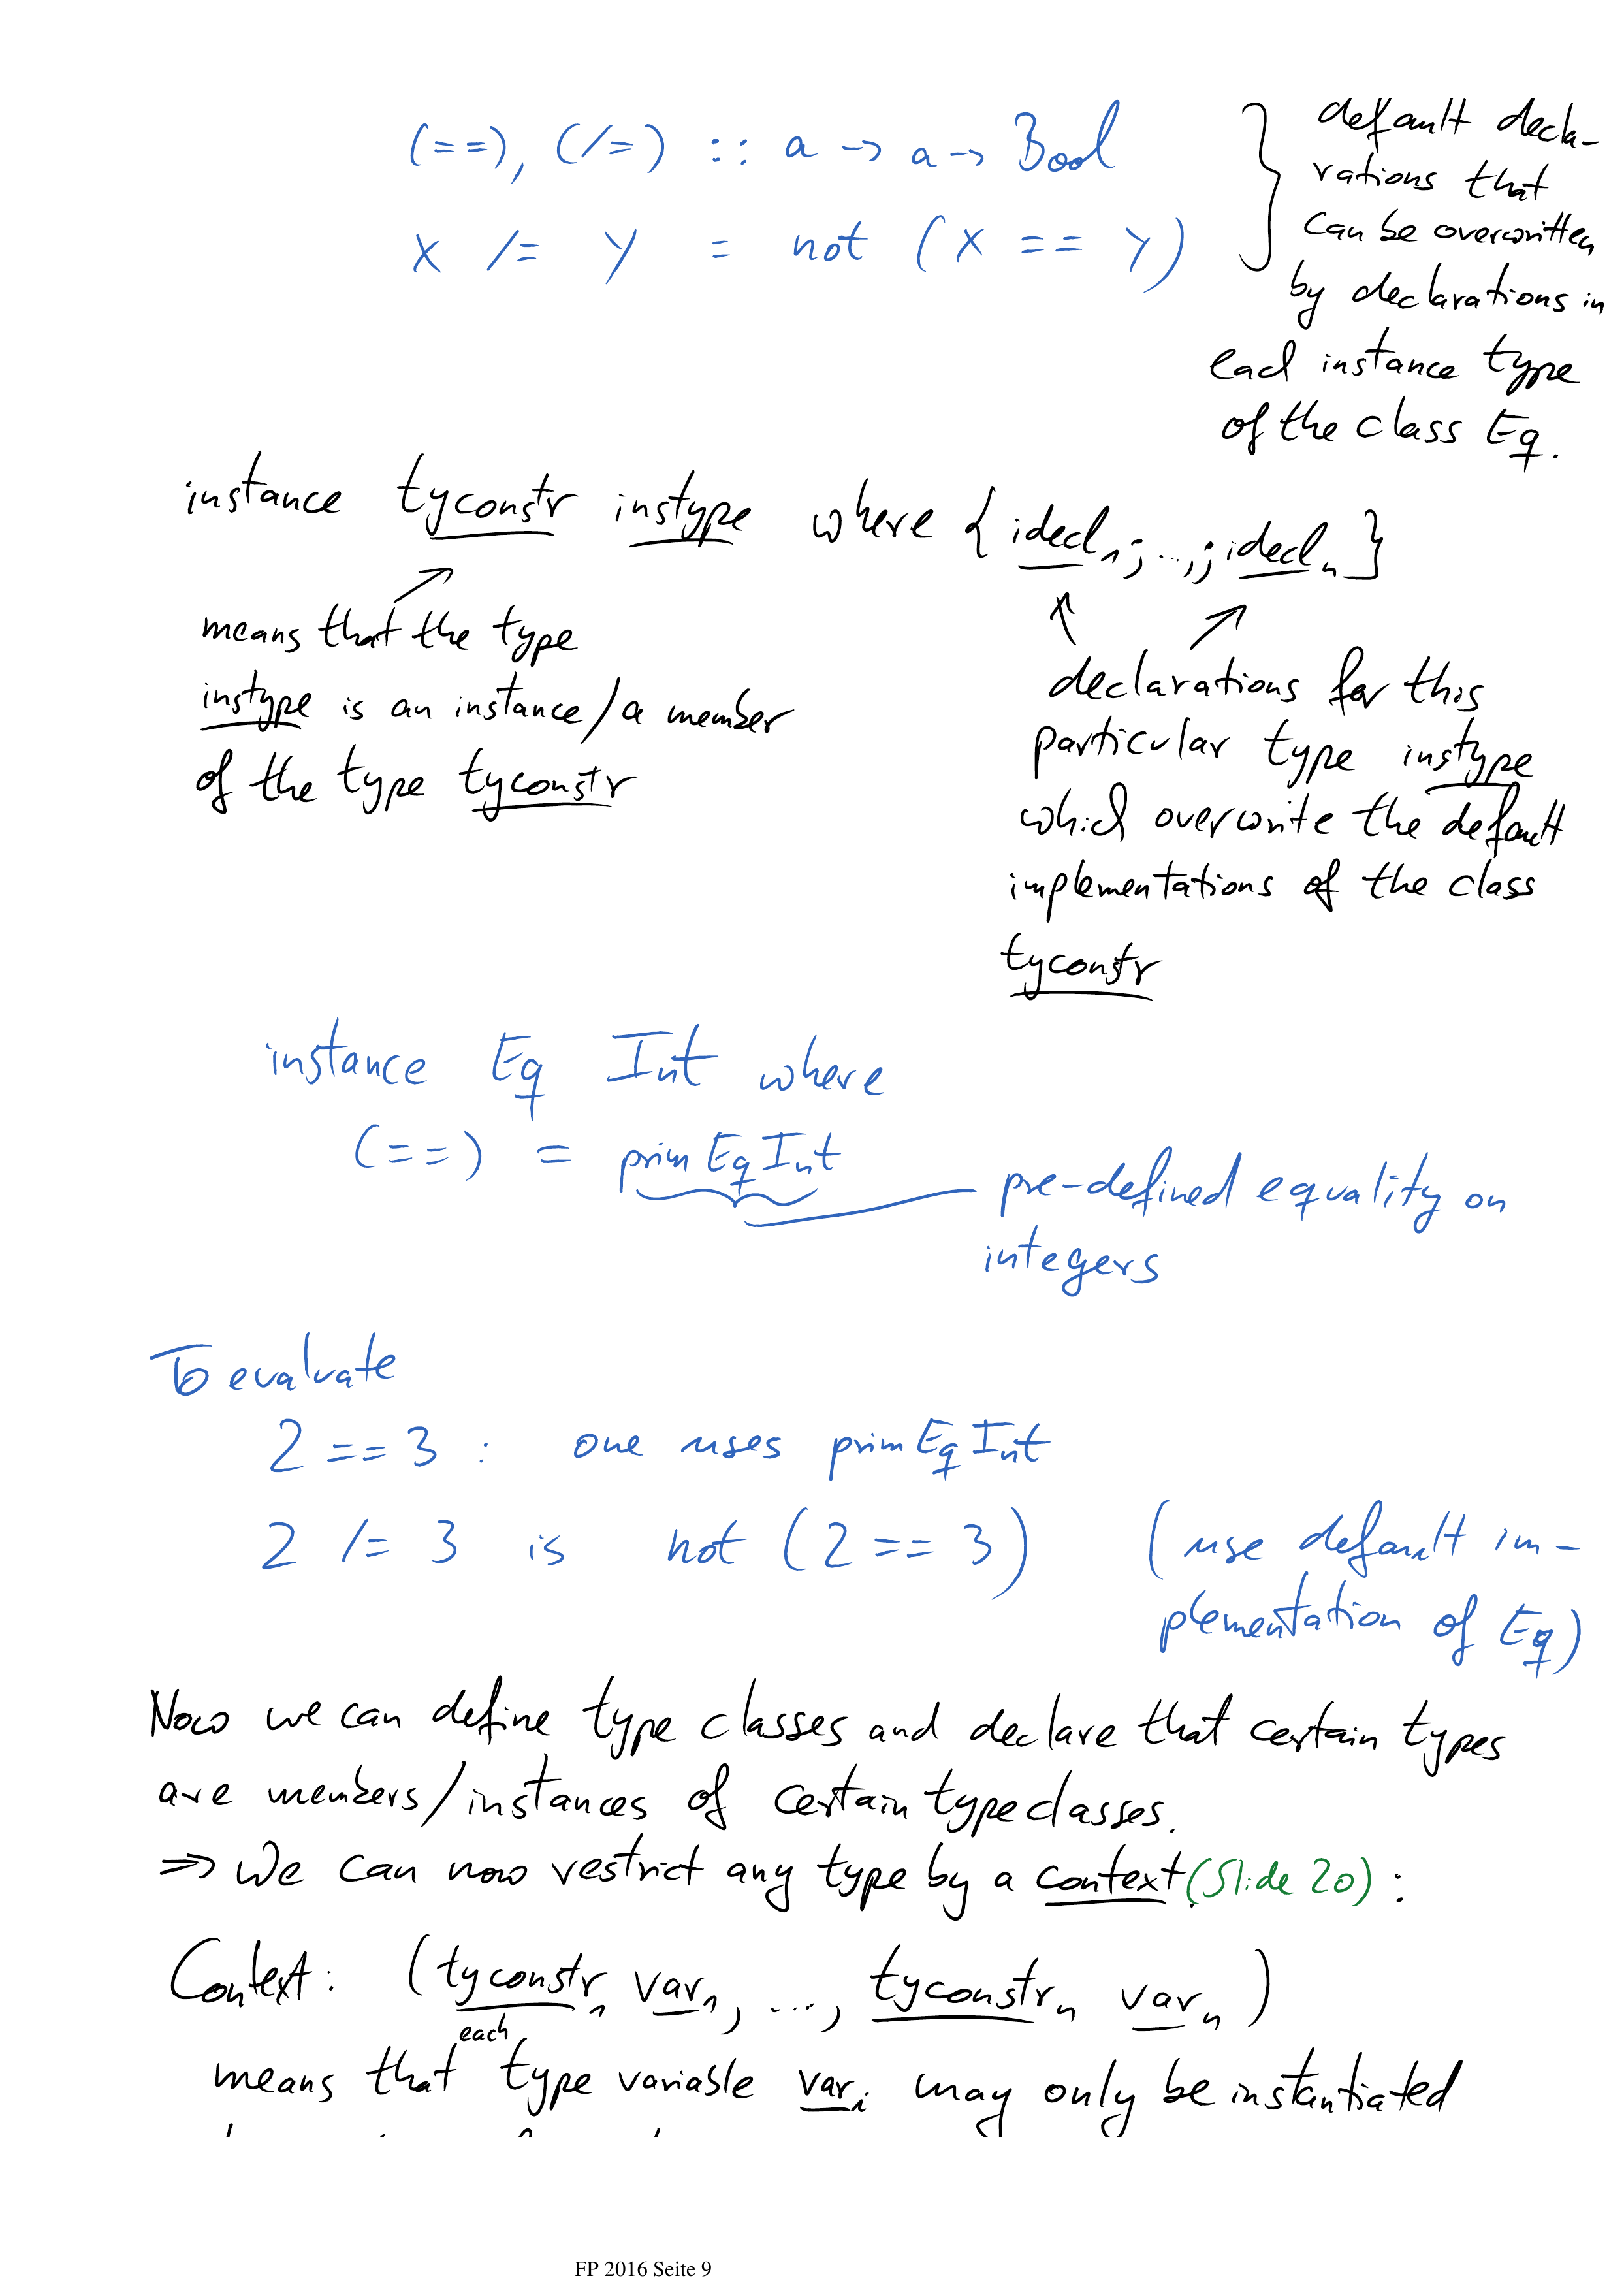 (==), (/=) :: a -> a -> Bool
x /= y = not (x == y)
default decla-
rations that
can be overwritten
by declarations in
each instance type
of the class Eq.
instance tyconstr instype where {idecl₁; ...; idecl_n}
means that the type
instype is an instance/a member
of the type tyconstr
declarations for this
particular type instype
which overwrite the default
implementations of the class
tyconstr
instance Eq Int where
(==) = primEqInt
pre-defined equality on
integers
To evaluate
2 == 3 : one uses primEqInt
2 /= 3 is not (2 == 3) (use default im-
plementation of Eq)
Now we can define type classes and declare that certain types
are members/instances of certain type classes.
⇒ We can now restrict any type by a context (Slide 20) :
Context: (tyconstr₁ var₁, ..., tyconstr_n var_n)
means that each type variable var_i may only be instantiated
FP 2016 Seite 9